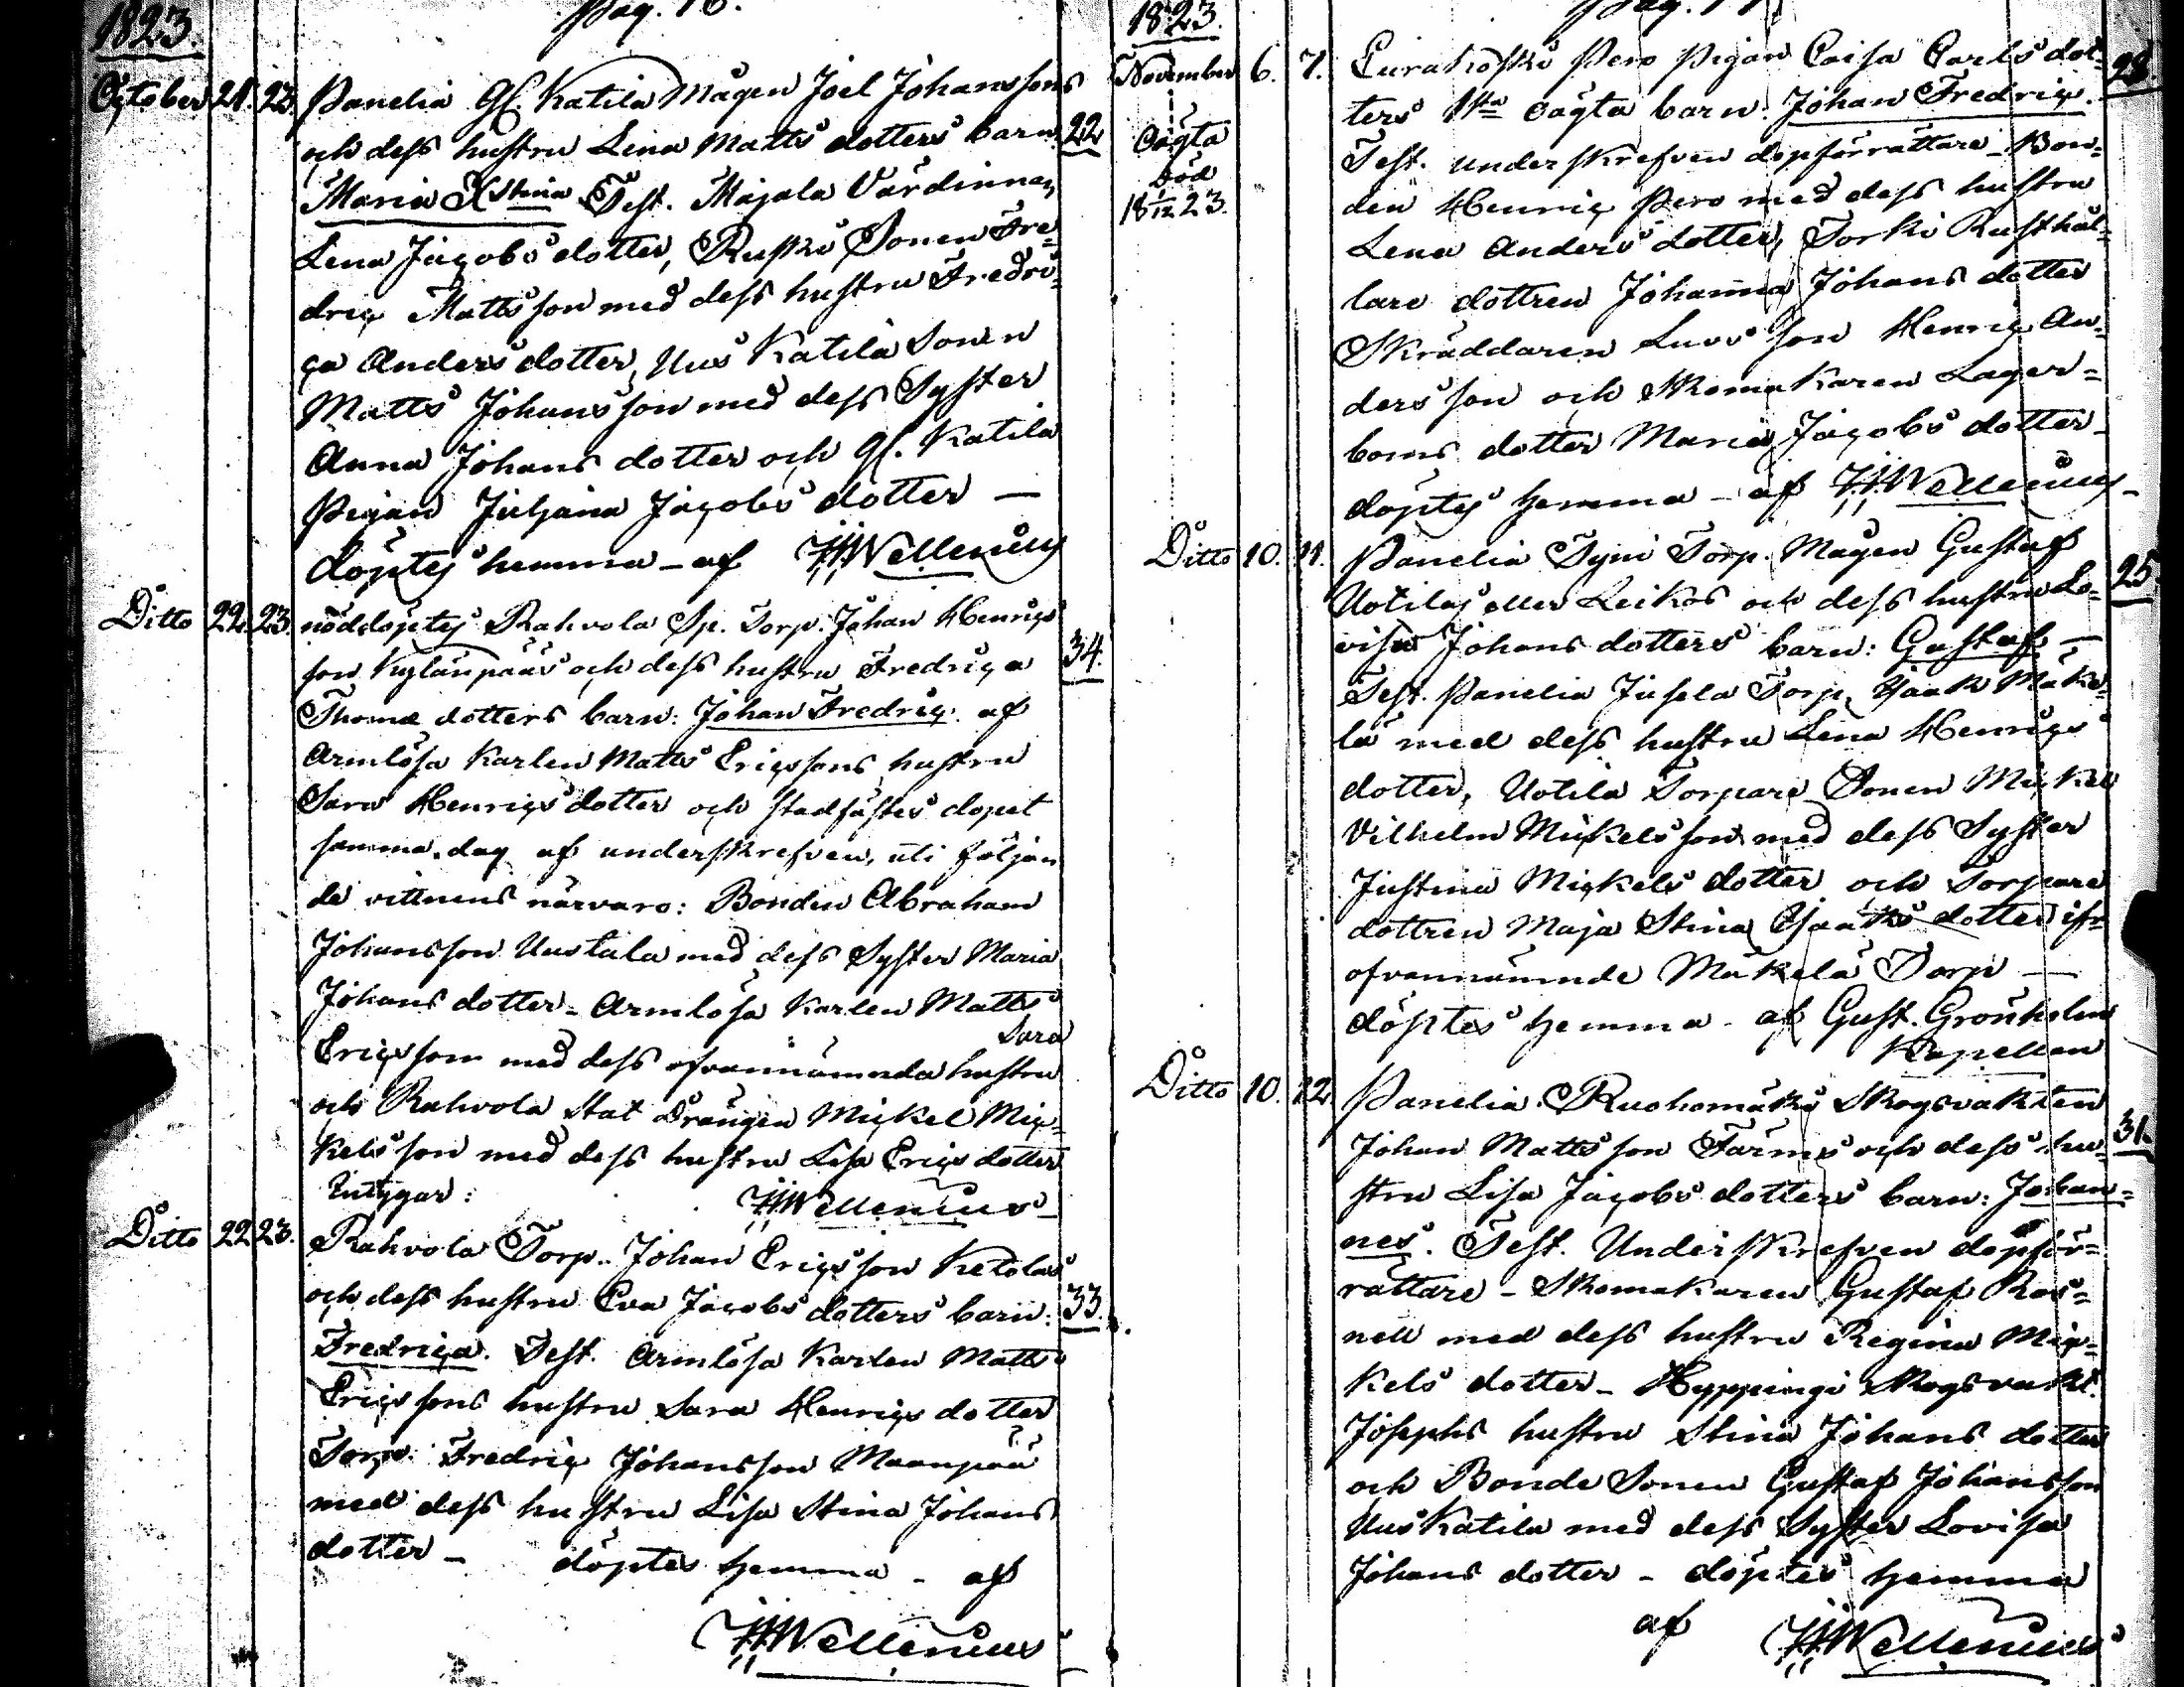 1823.
Pag. 16.
October 21. 23. Panelia Gl. Katila Mågen Joel Johanssons
och dess hustru Lena Matts dotters barn 22
Maria Xstina Test. Majala Värdinnan
Lena Jacobs dotter, Ruski Sonen Fre=
dric Mattsson med dess hustru Fredri=
ca Anders dotter, Uus Katila Sonen
Matts Johansson med dess Syster
Anna Johans dotter och Gl. Katila
Pigan Juljana Jacobs dotter —
döptes hemma – af HHWellenius
Ditto 22. 23. nöddöptes Rahvola Sp. Torp. Johan Henrics
son Kylänpääs och dess hustru Fredrica 34.
Thomæ dotters barn: Johan Fredric. af
Armlösa Karlen Matts Ericssons hustru
Sara Henrics dotter och stadfästes dopet
samma dag af underskrefven, uti följan
de vittnens närvaro: Bonden Abraham
Johansson Uustala med dess Syster Maria
Johans dotter – Armlösa Karlen Matts
Sara
Ericsson med dess ofvannämnda hustru
och Rahvola Stat Drängen Mickel Mic=
kelsson med dess hustru Lisa Erics dotter
Intygar: HHWellenius
Ditto 22 23. Rahvola Torp. Johan Ericsson Ketolas
och dess hustru Eva Jacobs dotters barn: 33.
Fredrica. Test. Armlösa Karlen Matts
Ericssons hustru Sara Henrics dotter
Torp. Fredric Johansson Maanpää
med dess hustru Lisa Stina Johans
dotter – döptes hemma – af
HHWellenius
1823.
Pag. 17
November 6. 7. Eurakoski Pero Pigan Caisa Carls dot= 28.
ters 1sta oägta barn: Johan Fredric.
Oägta
Död
18 1/12 23.
Test. underskrefven dopförrättare – Bon=
den Henric Pero med dess hustru
Lena Anders dotter, Torki Rusthål=
lare dottren Johanna Johans dotter
Skräddaren Luos son Henric An=
dersson och Skomakaren Lager=
boms dotter Maria Jacobs dotter –
döptes hemma – af HHWellenius
Ditto 10. 11. Panelia Tyni Torp. Mågen Gustaf
Uotilas eller Leikos och dess hustru Lo= 25.
visa Johans dotters barn: Gustaf —
Test. Panelia Jusela Torp. Isaak Mäke=
lä med dess hustru Lena Henrics
dotter, Uotila Torpare Sonen Mickel
Vilhelm Mickelsson med dess Syster
Justina Mickels dotter och Torpare
dottren Maja Stina Isaaks dotter ifr
ofvannämnde Mäkelä Torp —
döptes hemma – af Gust. Grönholm
Kapellan
Ditto 10. 12. Panelia Ruohomäki Skogsvakten
Johan Mattsson Färms och dess hu= 31.
stru Lisa Jacobs dotters barn: Johan=
nes. Test. Underskrefven dopför=
rättare – Skomakaren Gustaf Ros=
nell med dess hustru Regina Mic=
kels dotter – Hyppingi Skogsvakt.
Josephs hustru Stina Johans dotter
och Bonde Sonen Gustaf Johansson
Uus Katila med dess Syster Lovisa
Johans dotter – döptes hemma
af HHWellenius